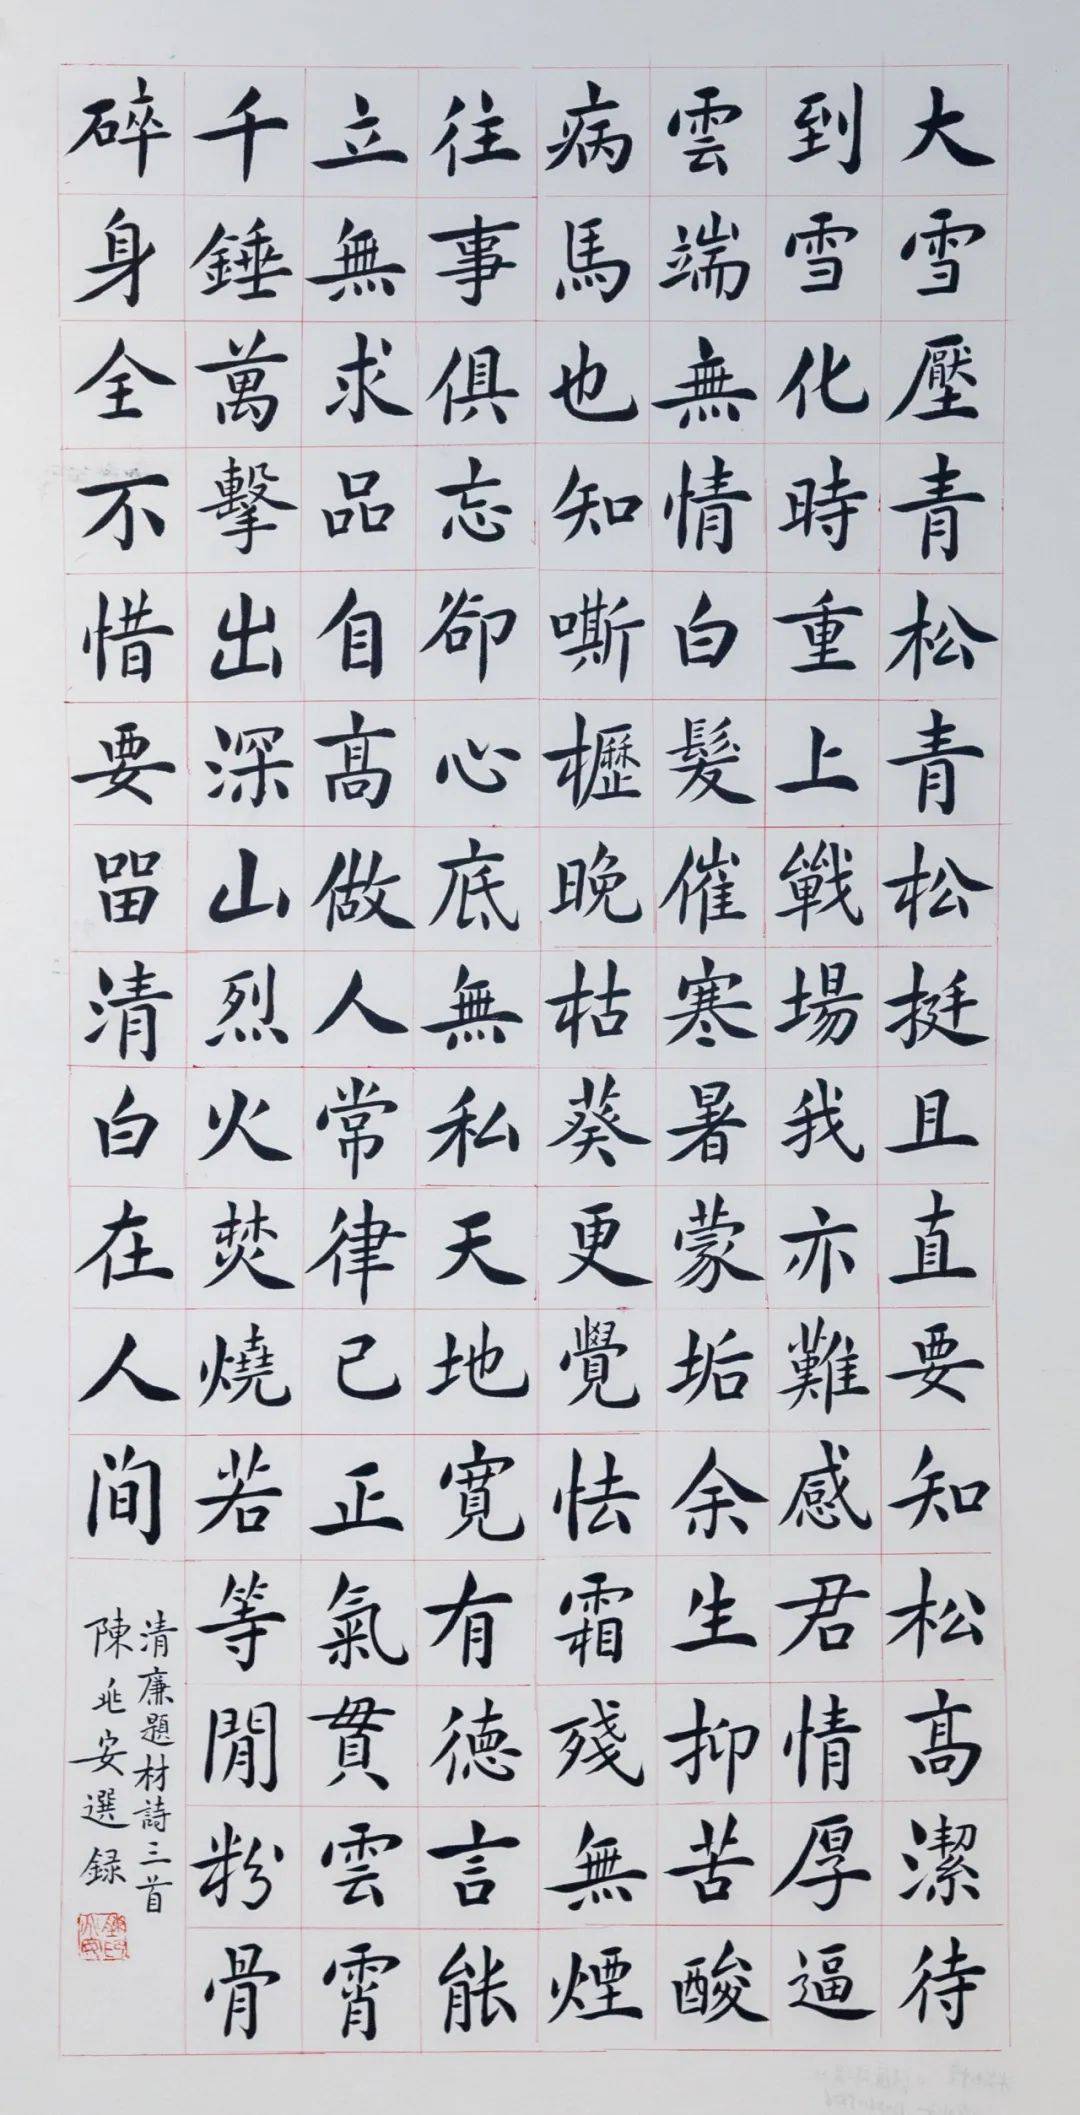 大雪壓青松青松挺且直要知松高潔待
到雪化時重上戰場我亦難感君情厚逼
雲端無情白髮催寒暑蒙垢余生抑苦酸
病馬也知嘶櫪晚枯葵更覺怯霜殘無煙
往事俱忘卻心底無私天地寬有德言能
立無求品自高做人常律己正氣貫雲霄
千錘萬擊出深山烈火焚燒若等閒粉骨
碎身全不惜要留清白在人间
清廉題材詩三首
陳兆安選録